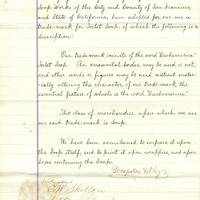 Soap Works of the City and County of San Francisco
and State of California, have adopted for our use a
trade-mark for Toilet Soap, of which the following is a
description:
Our trade-mark consists of the word "Cashmerine"
Toilet Soap. An ornamental border may be used or not,
and other words or figures may be used without mater-
ially altering the character of our trade-mark, the
essential feature of which is the word "Cashmerine."
This class of merchandise upon which we use
our said trade-mark is Soap.
We have been accustomed to impress it upon
the Soap itself, and to print it upon wrappers, and upon
boxes containing the Soap.